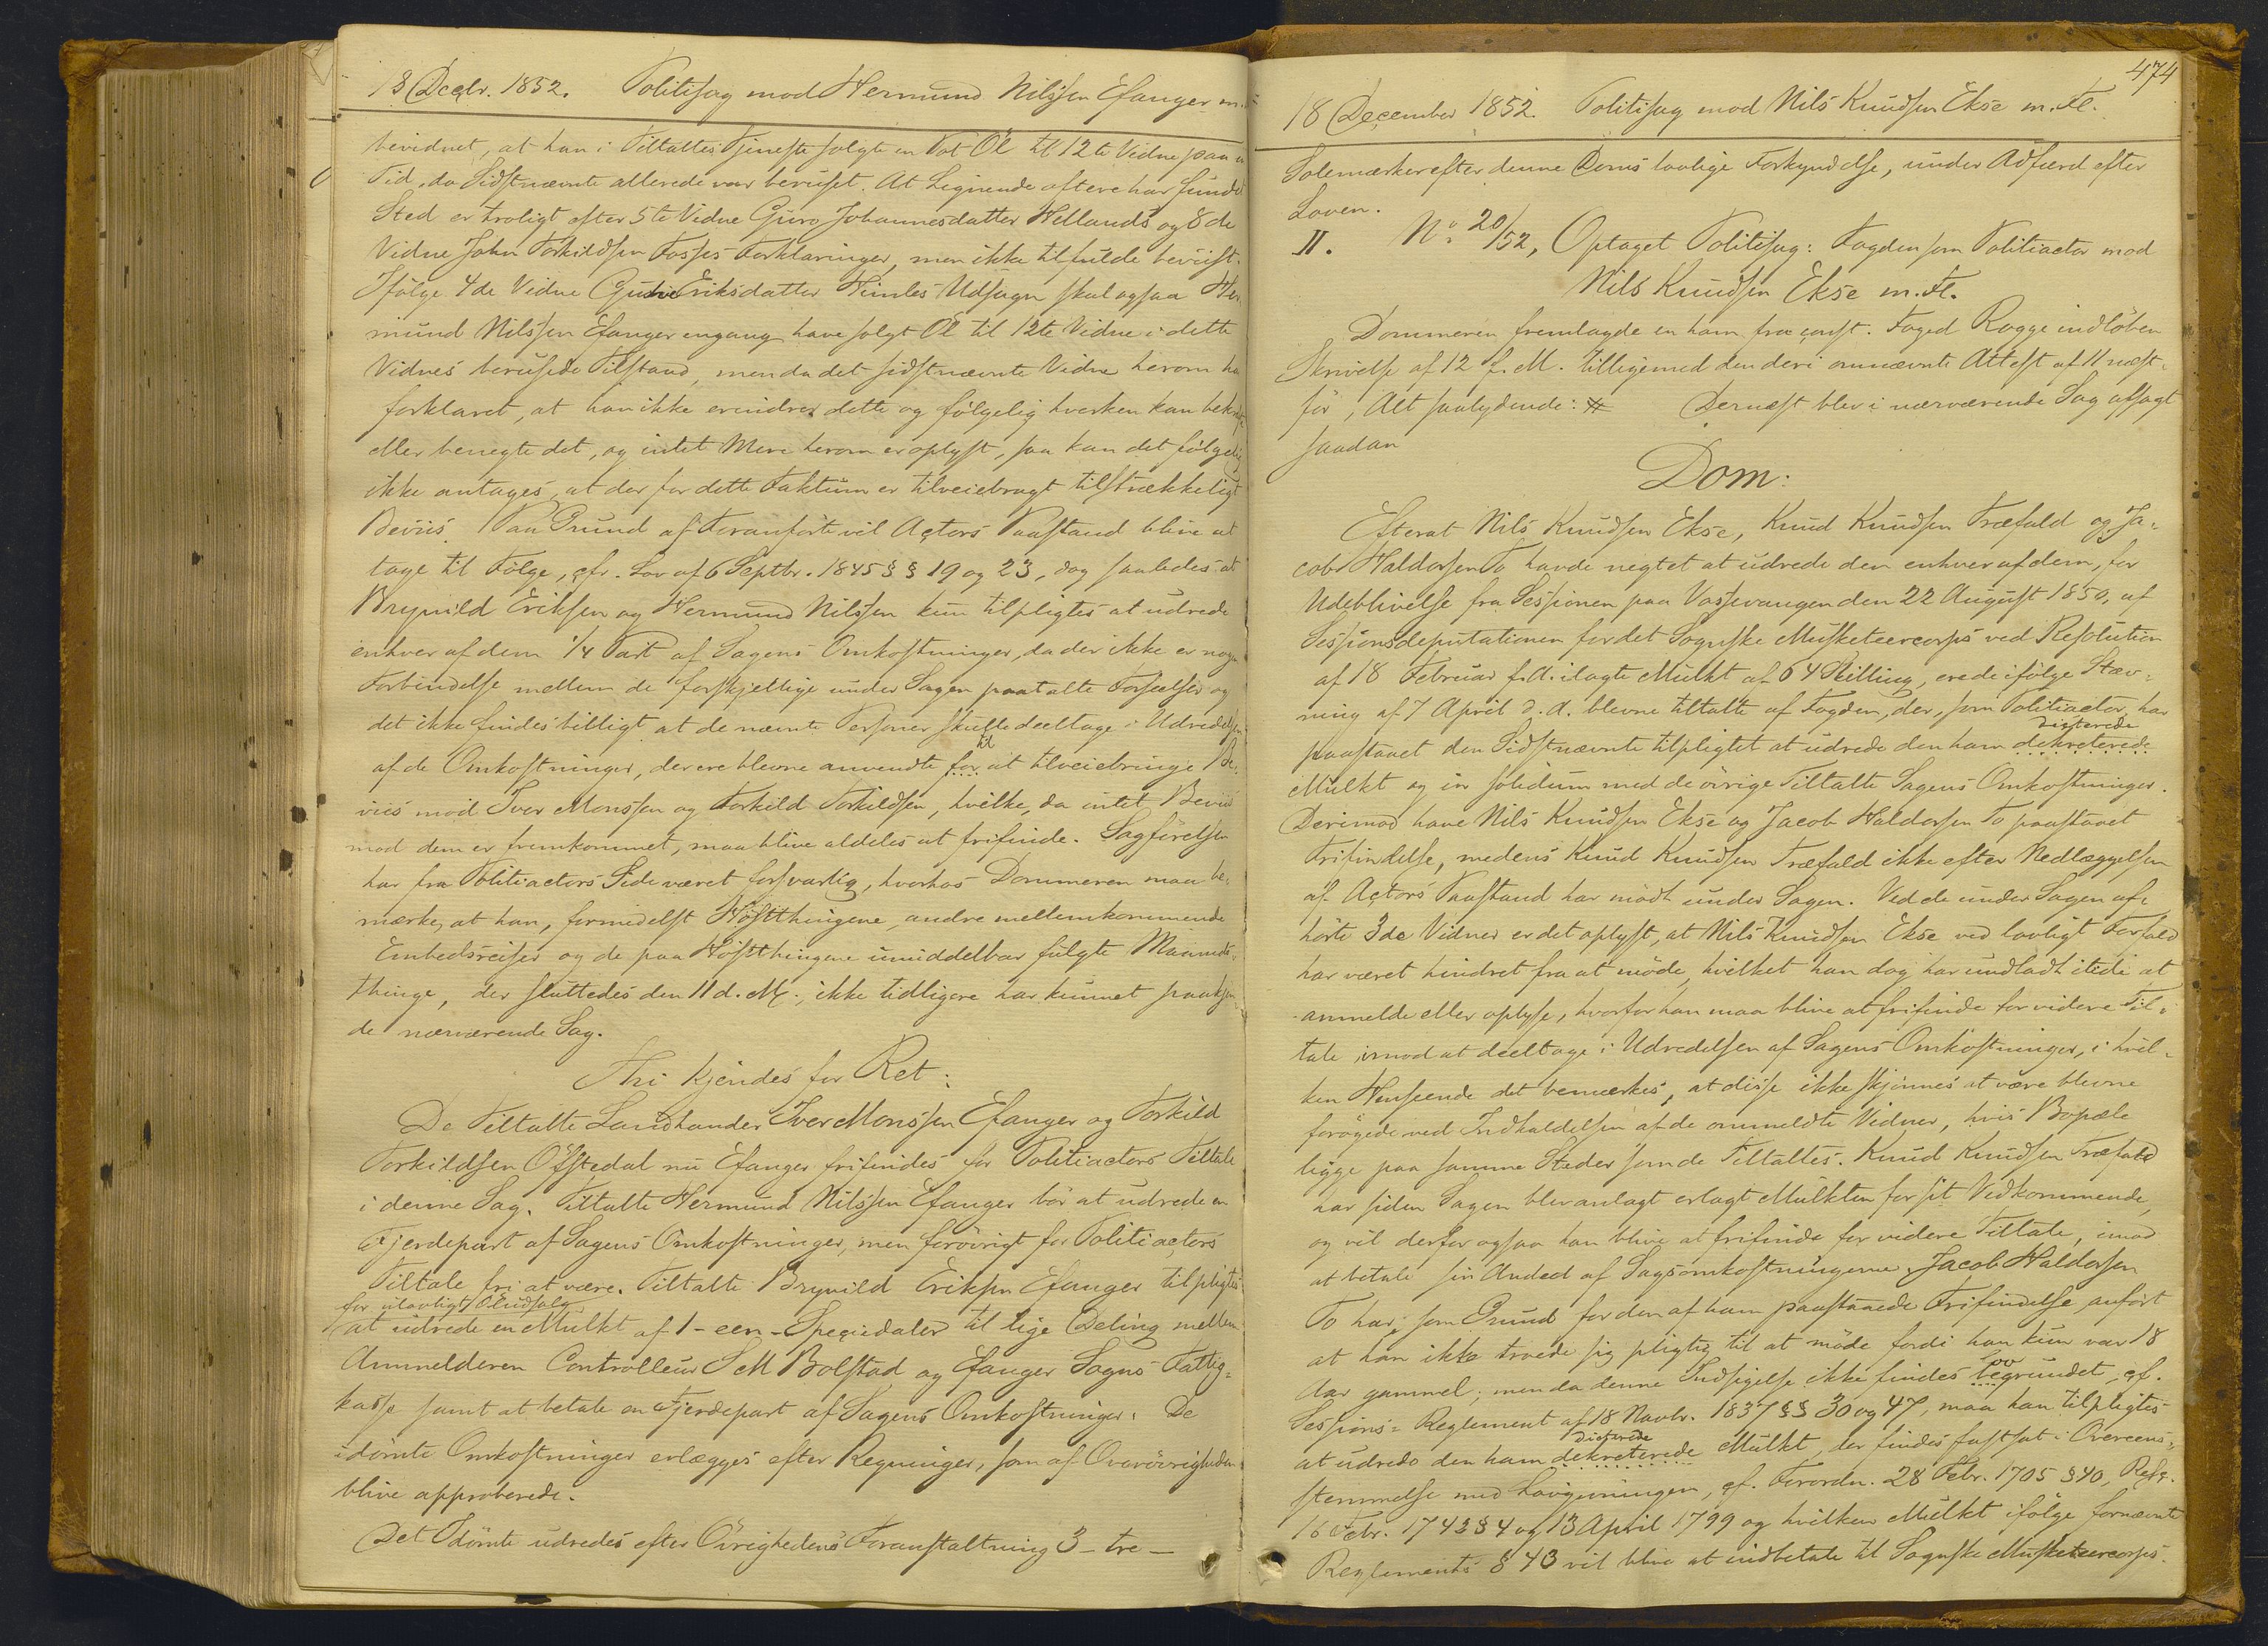 18 Decbr. 1852. Politisag mod Hermund Nilssen Efanger m.
bevidnet, at han i Tiltaltes Tjeneste solgte en Pot Öl til 12te Vidne paa en
Tid, da Sidstnævnte allerede var beruset. At Lignende oftere har fundet
Sted er troligt efter 5te Vidne Guro Johannesdatter Hellands og 8de
Vidne John Torkildsen Fosses Forklaringer, men ikke tilfulde beviist.
Ifölge 4de Vidne Eriksdatter Himles Udsagn skal ogsaa Her
mund Nilssen Efanger engang have solgt Öl til 12te Vidne i dette
Vidnes berusede Tilstand, men da det sidstnævnte Vidne herom ha
forklaret, at han ikke erindrer dette og fölgelig hverken kan bekræf
eller benegte det, og intet Mere herom er oplyst, saa kan det fölgelig
ikke antages, at der for dette Faktum er tilveiebragt tilstrækkeligt
Beviis. Paa Grund af Foranförte vil Actors Paastand blive at
tage til Fölge, cfr. Lov af 6 Septbr. 1845 § § 19 og 23, dog saaledes at
Brynild Eriksen og Hermund Nilssen kun tilpligtes at udrede
enhver af dem 1/4 Part af Sagens Omkostninger, da der ikke er nogen
Forbindelse mellem de forskjellige under Sagen paatalte Forseelser og
det ikke findes billigt at de nævnte Personer skulle deeltage i Udredelsen
til
af de Omkostninger, der ere blevne anvendte for at tilveiebringe Be-
viis mod Iver Monssen og Torkild Torkildsen, hvilke, da intet Beviis
mod dem er fremkommet, maa blive aldeles at frifinde. Sagförelsen
har fra Politiactors Side været forsvarlig, hvorhos Dommeren maa be-
mærke, at han, formedelst Höstthingene, andre mellemkommende
Embedsreiser og de paa Höstthingene umiddelbar fulgte Maaneds-
thinge, der sluttedes den 11 d. M., ikke tidligere har kunnet paakjen-
de nærværende Sag.
Thi kjendes for Ret:
De Tiltalte Landhandler Iver Monssen Efanger og Torkild
Torkildsen Öfstedal nu Efanger frifindes for Politiactors Tiltale
i denne Sag. Tiltalte Hermund Nilssen Efanger bör at udrede en
Fjerdepart af Sagens Omkostninger, men forövrigt for Politiactors
Tiltale fri at være. Tiltalte Brynild Eriksen Efanger tilpligtes
for ulovligt Öludsalg
at udrede en Mulkt af 1 - een - Speciedaler til lige Deling mellem
Anmelderen Controlleur S M Bolstad og Efanger Sogns Fattig-
kasse samt at betale en Fjerdepart af Sagens Omkostninger. De
idömte Omkostninger erlægges efter Regninger, som af Overövrigheden
blive approberede.
Det Idömte udredes efter Övrighedens Foranstaltning 3 - tre -
474
18 December 1852. Politisag mod Nils Knudsen Ekse m. Fl.
Solemærker efter denne Doms lovlige Forkyndelse, under Adfærd efter
Loven.
II. No 20/52, Optaget Politisag: Fogden som Politiactor mod
Nils Knudsen Ekse m. Fl.
Dommeren fremlagde en ham fra const. Foged Rogge indlöben
Skrivelse af 12 f. M. tilligemed den deri omnævnte Attest af 11 næst-
för, Alt saalydende: # Dernæst blev i nærværende Sag afsagt
saadan
Dom:
Efterat Nils Knudsen Ekse, Knud Knudsen Træfald og Ja-
cob Haldorsen To havde negtet at udrede den enhver af dem, for
Udeblivelse fra Sessionen paa Vossevangen den 22 August 1850, af
Sessionsdeputationen for det Sognske Musketeercorps ved Resolution
af 18 Februar f. A. ilagte Mulkt af 64 Skilling, ere de ifölge Stæv-
ning af 7 April d. A. blevne tiltalte af Fogden, der, som Politiactor, har
dicterede
paastaaet den Sidstnævnte tilpligtet at udrede den ham dekreterede
Mulkt og in solidum med de övrige Tiltalte Sagens Omkostninger.
Derimod have Nils Knudsen Ekse og Jacob Haldorsen To paastaaet
Frifindelse, medens Knud Knudsen Træfald ikke efter Nedlæggelsen
af Actors Paastand har mödt under Sagen. Ved de under Sagen af-
hörte 3de Vidner er det oplyst, at Nils Knudsen Ekse ved lovligt Forfald
har været hindret fra at möde, hvilket han dog har undladt itide at
anmelde eller oplyse, hvorfor han maa blive at frifinde for videre Til-
tale imod at deeltage i Udredelsen af Sagens Omkostninger, i hvil-
ken Henseende det bemærkes, at disse ikke skjönnes at være blevne
forögede ved Indkaldelsen af de ommeldte Vidner, hvis Bopæle
ligge paa samme Steder som de Tiltaltes. Knud Knudsen Træfald
har siden Sagen blev anlagt erlagt Mulkten for sit Vedkommende,
og vil derfor ogsaa han blive at frifinde for videre Tiltale, imod
at betale sin Andeel af Sagsomkostningerne. Jacob Haldorsen
To har, som Grund for den af ham paastaaede Frifindelse anfört
at han ikke troede sig pligtig til at möde fordi han kun var 18
Aar gammel; men da denne Indsigelse ikke findes begrundet, cf.
Sessions-Reglement af 18 Novbr. 1837 §§ 30 og 47, maa han tilpligtes
dicterede
at udrede den ham dekreterede Mulkt, der findes fastsat i Overeens-
stemmelse med Lovgivningen, cf. Forordn. 28 Febr. 1705 § 40, Rescr.
16 Febr. 1742 § 4 og 13 April 1799 og hvilken Mulkt ifölge fornævnte
Reglements § 43 vil blive at indbetale til Sognske Musketeercorps.